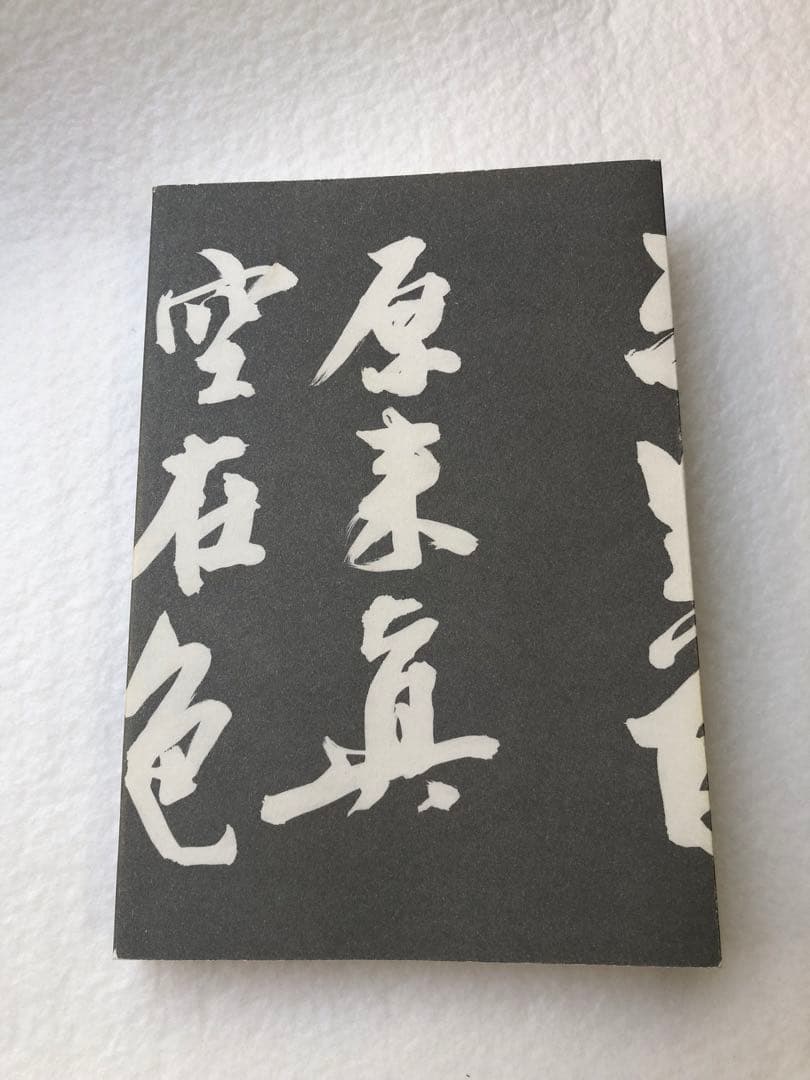 原来真
空在色